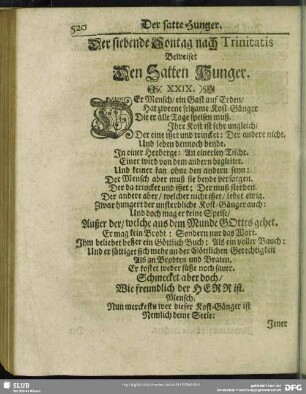 520
Der satte Hunger.
Der siebende Sontag nach Trinitatis
Beweiset
Den Satten Hunger.
XXIX.
DEr Mensch/ ein Gast auf Erden/
Hat zweene seltzame Kost-Gänger
Die er alle Tage speisen muß.
Ihre Kost ist sehr ungleich/
Der eine isset und trincket: Der andere nicht.
Und leben dennoch beyde.
In einer Herberge: An einerley Tische.
Einer wird von dem andern begleitet.
Und keiner kan ohne den andern seyn:
Der Mensch aber muß sie beyde versorgen.
Der da trincket und isset; Der muß sterben.
Der andere aber/ welcher nicht isset/ lebet ewig.
Zwar hungert der unsterbliche Kost-Gänger auch:
Und doch mag er keine Speise/
Ausser der/ welche aus dem Munde GOttes gehet.
Er mag kein Brodt: Sondern nur das Wort.
Ihm beliebet besser ein Göttlich Buch: Als ein voller Bauch:
Und er sättiget sich mehr an der Göttlichen Gerechtigkeit
Als an Brodten und Braten.
Er kostet weder süsse noch sauer.
Schmecket aber doch/
Wie freundlich der HERR ist.
Mensch.
Nun merckestu wer dieser Kost-Gänger ist
Nemlich deine Seele:
Jener
SLUB
Wir führen Wissen.